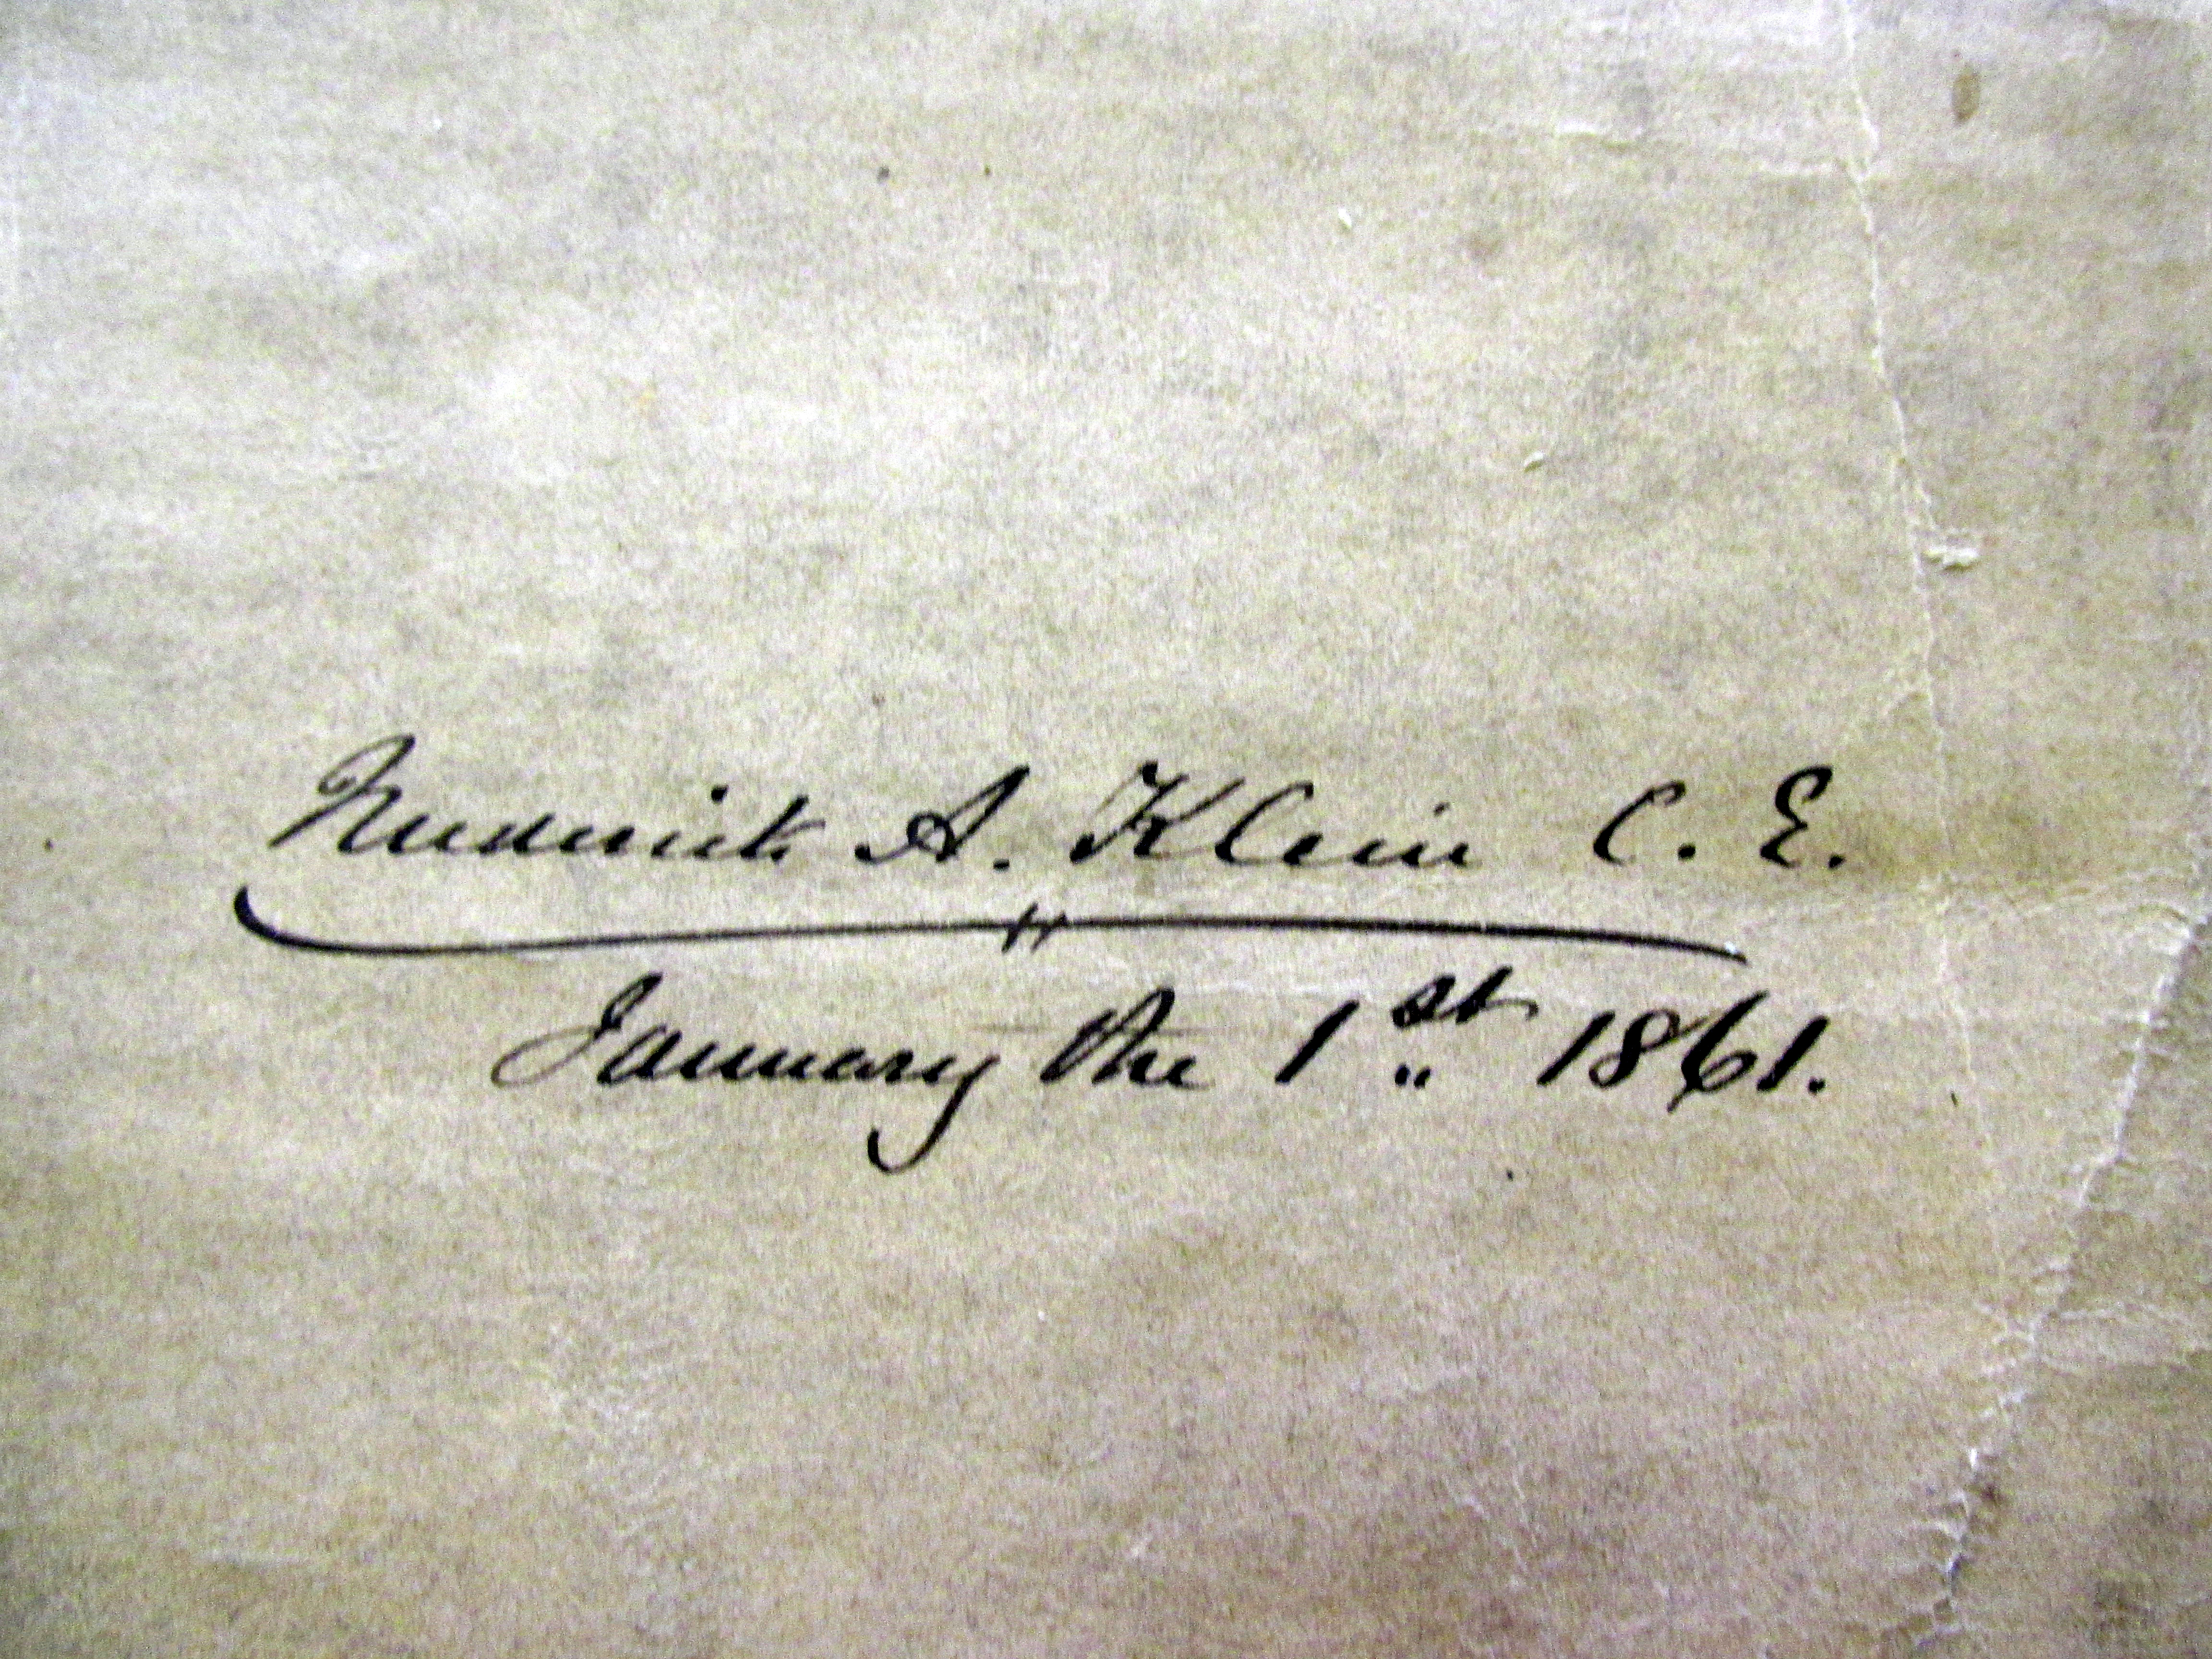 Frederick A. Klein C. E.
January the 1st 1861.